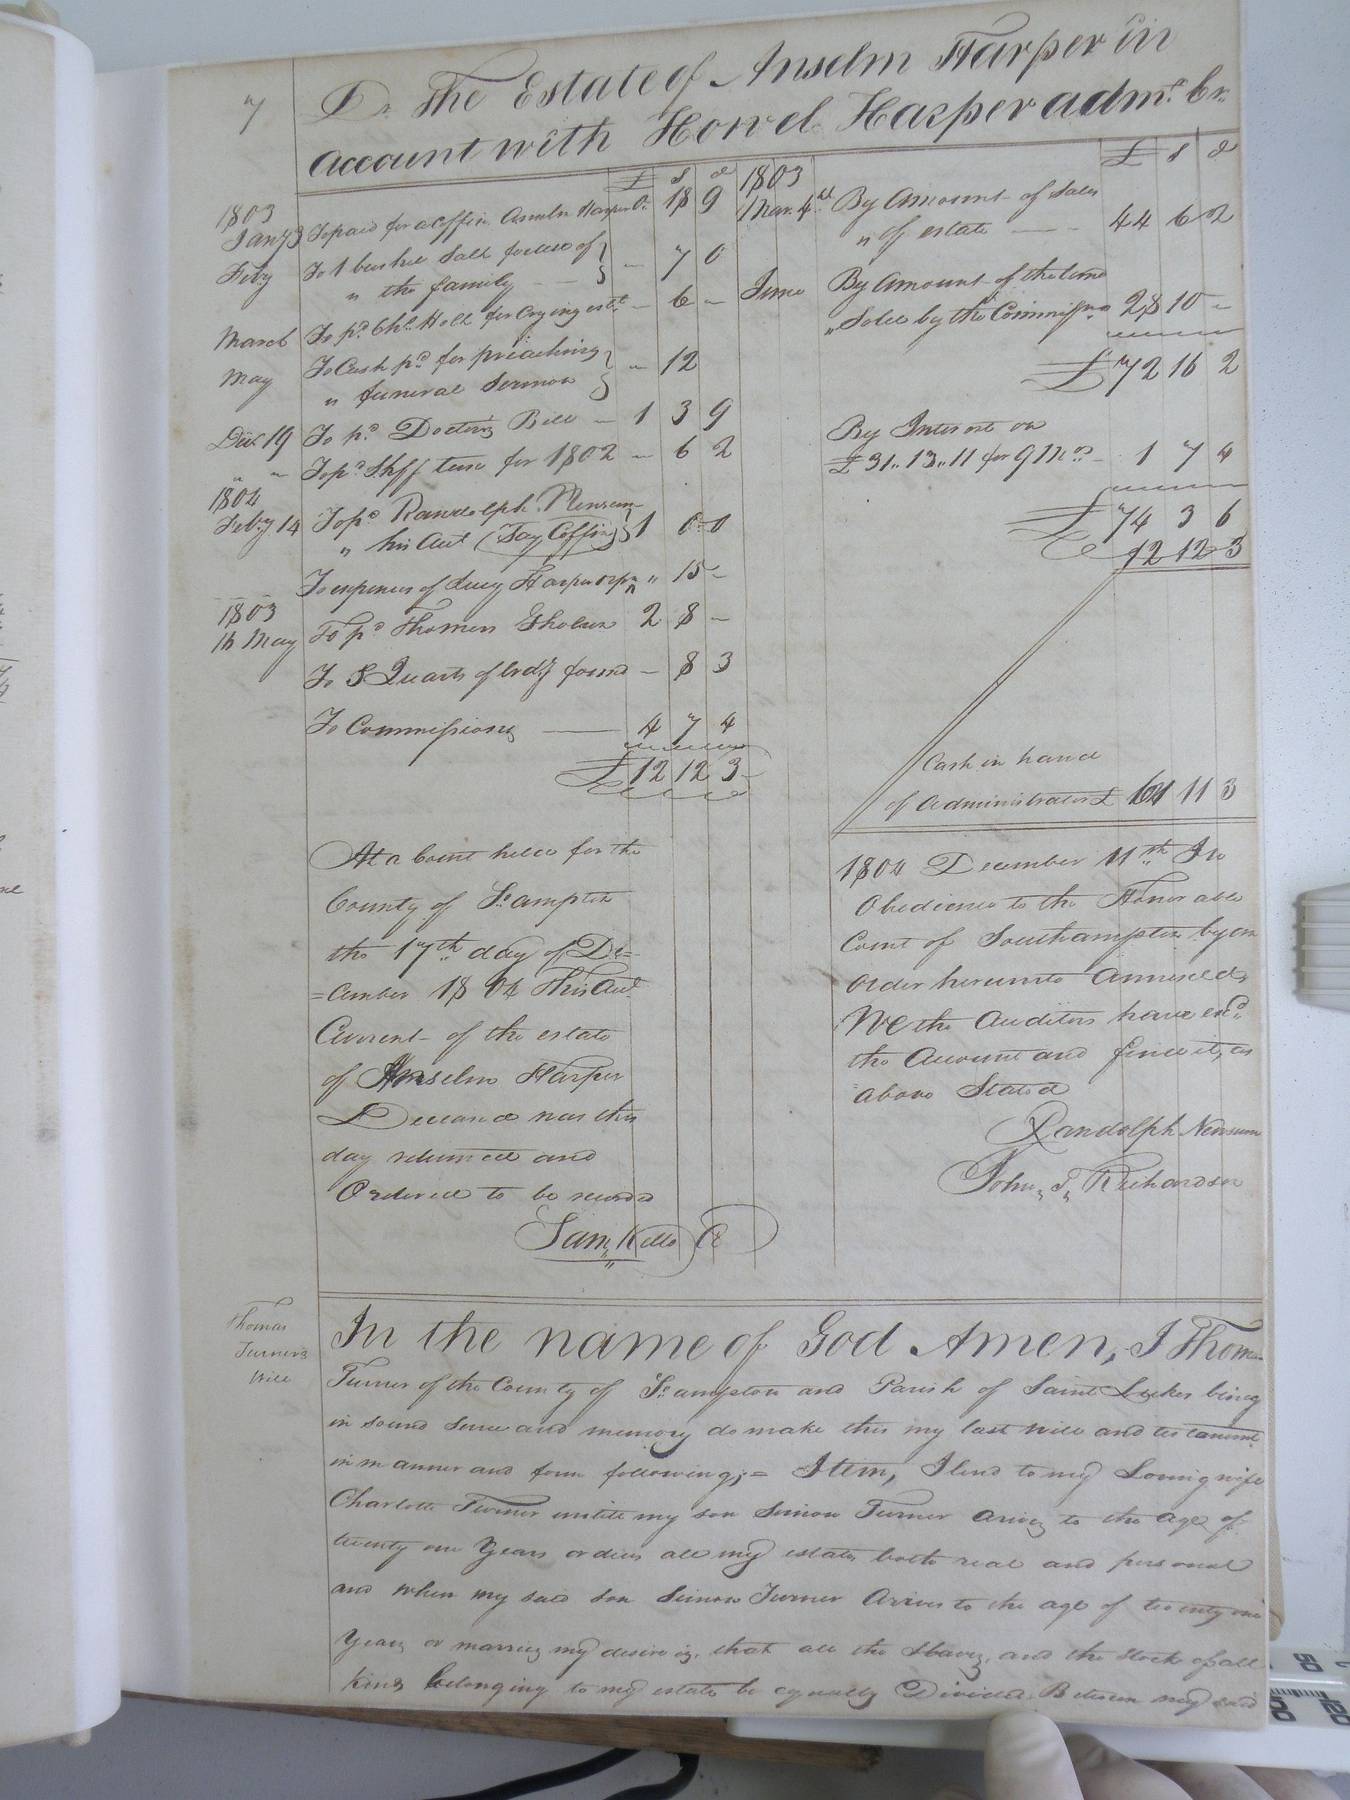 7
Dr. The Estate of Anselm Harper in
account with Howel Harper admr. Cr.
£ s d
1803
Jany 3 To paid for a Coffin Anselm Harper Dr. 18 9
Feby To 1 bushel Salt for use of
" the family - - 7 0
March To pd. Chs. Holt for Crying estt. - 6 -
May To Cash pd. for preaching
" funeral Sermon - 12
Decr. 19 To pd. Doctors Bill - 1 3 9
" " To pd. Shff taxes for 1802 - 6 2
1804
Feby 14 To pd. Randolph Newsum
" his Acct (Say Coffin) 1 0 0
To expenses of Lucy Harper " 15 -
1803
16 May To pd. Thomas Gholson 2 8 -
To 8 Quarts of brdy found - 8 3
To Commissions 4 7 4
£ 12 12 3
£ s d
1803
Mar. 4th By Amount of Sales
" of estate 44 6 2
June By Amount of the time
" Sold by the Commissns 28 10 -
£ 72 16 2
By Interest on
£ 31 .. 13 .. 11 for 9 Mos. - 1 7 4
£ 74 3 6
12 12 3
Cash in hand
of Administrator £ 61 11 3
At a Court held for the
County of So.ampton
the 17th day of De=
=cember 1804 This Acct
Current of the estate
of Anselm Harper
Deceased was this
day returned and
Ordered to be record
Sam. Kello C
1804 December 11th In
Obedience to the Honorable
Court of Southampton by an
Order hereunto Annexed,
We the Auditors have exd.
the Account and find it, as
above Stated
Randolph Newsum
John T. Richardson
Thomas
Turners
Will
In the name of God Amen, I Thomas
Turner of the County of So.ampton and Parish of Saint Lukes being
in sound sence and memory do make this my last will and testament
in manner and form following; = Item, I lend to my Loving wife
Charlotte Turner untill my son Simon Turner arives to the age of
twenty one Years or dies all my estate both real and personal
and when my said son Simon Turner Arives to the age of twenty one
Years or marries my desire is, that all the Slaves, and the Stock of all
kinds belonging to my estate be equally Divided Between my said